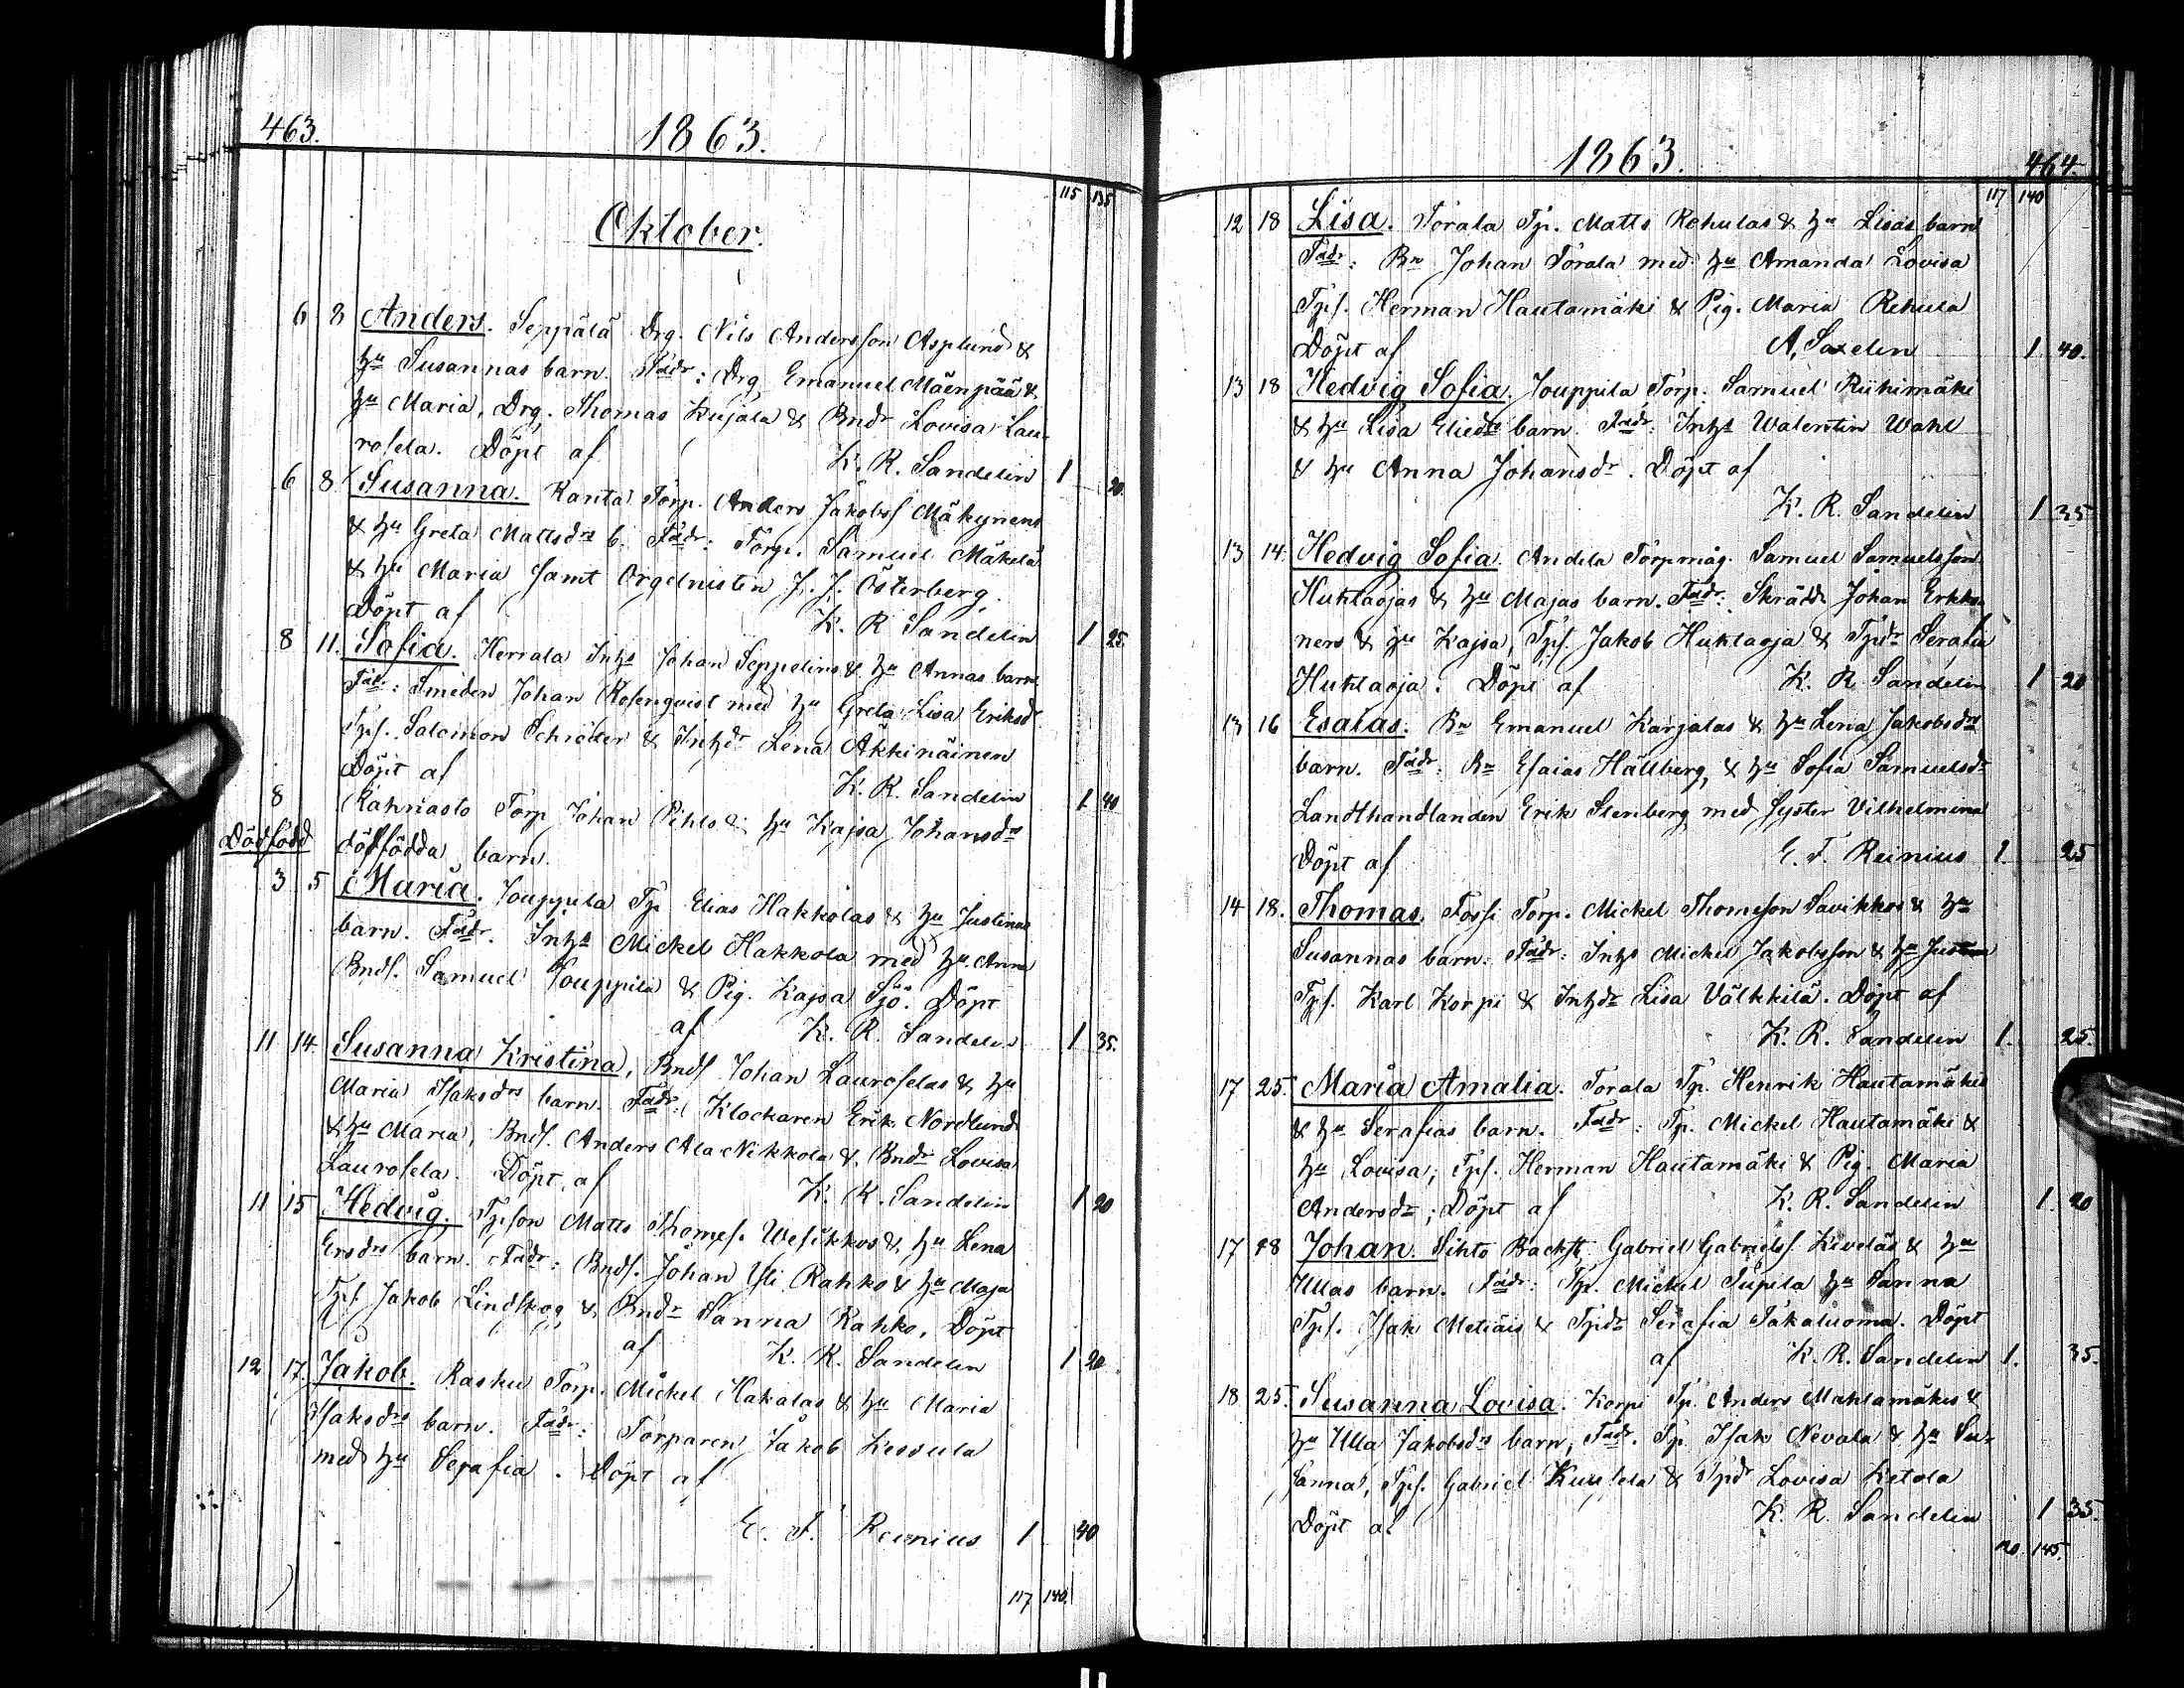 463.
1863.
115 135
Oktober.
6 8 Anders. Seppälä Drg. Nils Andersson Asplund &
hu Susannas barn. Fadr: Drg Emanuel Mäenpää &
hu Maria, Drg. Thomas Kujala & Bndr Lovisa Lau-
rosela. Döpt af K. R. Sandelin 1 20.
6 8. Susanna. Ranta Torp. Anders Jakobss Mäkynens
& hu Greta Mattsdrs b. Fadr: Torp. Samuel Mäkelä
& hu Maria samt Orgelnisten J. J. Österberg.
Döpt af K. R Sandelin 1 25.
8 11. Sofia. Herrala Inhs Johan Seppelins & hu Annas barn
Fadr: Smeden Johan Rosenqvist med hu Greta Lisa Eriksdr
Tps. Salomon Schröder & Inhdr Lena Äkkinäinen
Döpt af K. R. Sandelin 1 40
8 Kahnasto Torp Johan Pihls & hu Kajsa Johansdrs
Dödfödd dödfödda barn.
3 5 Maria. Jouppila Tp Elias Hakkolas & hu Justinas
barn. Fadr. Inhs Mickel Hakkola med hu Anna
Bnds. Samuel Jouppila & Pig. Kajsa Sjö. Döpt
af K. R. Sandelin 1 35.
11 14. Susanna Kristina, Bnds Johan Lauroselas & hu
Maria Isaksdrs barn. Fadr: Klockaren Erik Nordlund
& hu Maria, Bnds. Anders Ala Nikkola & Bndr Lovisa
Laurosela. Döpt af K. R. Sandelin 1 20
11 15 Hedvig. Tpson Matts Thomes. Wesikkos & hu Lena
Ersdrs barn. Fadr: Bnds. Johan Yli Rahko & hu Maja
Tps Jakob Lindskog & Bndr Sanna Rahko. Döpt
af K. R. Sandelin 1 20
12 17. Jakob. Rasku Torp. Mickel Hakalas & hu Maria
Isaksdrs barn. Fadr: Torparen Jakob Kessula
med hu Serafia. Döpt af
E. F. Reinius 1 40
117 140.
1863.
464.
117 140
12 18 Lisa. Torala Tp. Matts Rehulas & hu Lisas barn
Fadr: Bn Johan Torala med hu Amanda Lovisa
Tps. Herman Hautamäki & Pig. Maria Rehula
Döpt af A. Saxelin 1 40.
13 18 Hedvig Sofia. Jouppila Torp. Samuel Riihimäki
& hu Lisa Eliedrs barn. Fadr: Inhs Walentin Wahl
& hu Anna Johansdr. Döpt af
K. R. Sandelin 1 35
13 14. Hedvig Sofia. Andila Torpmåg. Samuel Samuelsson
Huhtaojas & hu Majas barn. Fadr: Skrädd. Johan Erkki-
nen & hu Kajsa, Tps. Jakob Huhtaoja & Tpdr Serafia
Huhtaoja. Döpt af K. R Sandelin 1 20
13 16 Esaias. Bn Emanuel Karjalas & hu Lena Jakobsdrs
barn. Fadr: Bn Esaias Hällberg, & hu Sofia Samuelsdr
Landthandlanden Erik Stenberg med syster Vilhelmina
Döpt af E. F. Reinius 1. 25
14 18. Thomas. Fossi Torp. Mickel Thomeson Savikkos & hu
Susannas barn. Fadr: Inhs Mickel Jakobsson & hu Justina
Tps. Karl Korpi & Inhdr Lisa Välkkilä. Döpt af
K. R. Sandelin 1. 25.
17 25. Maria Amalia. Torala Tp. Henrik Hautamäkis
& hu Serafias barn. Fadr: Tp. Mickel Hautamäki &
hu Lovisa; Tps. Herman Hautamäki & Pig. Maria
Andersdr; Döpt af K. R. Sandelin 1. 20
17 18 Johan. Sihto Backst. Gabriel Gabriels. Kiveläs & hu
Ullas barn. Fadr: Tp. Mickel Jupila hu Sanna
Tps. Isak Metiäis & Tpdr Serafia Takaluoma. Döpt
af K. R. Sandelin 1. 35.
18 25. Susanna Lovisa. Korpi Tp. Anders Mahlamäkis &
hu Ulla Jakobsdrs barn, Fadr. Tp. Isak Nevala & hu Su-
sanna, Tps. Gabriel Kuusela & Tpdr Lovisa Ketola
Döpt af K. R. Sandelin 1 35.
120. 145.